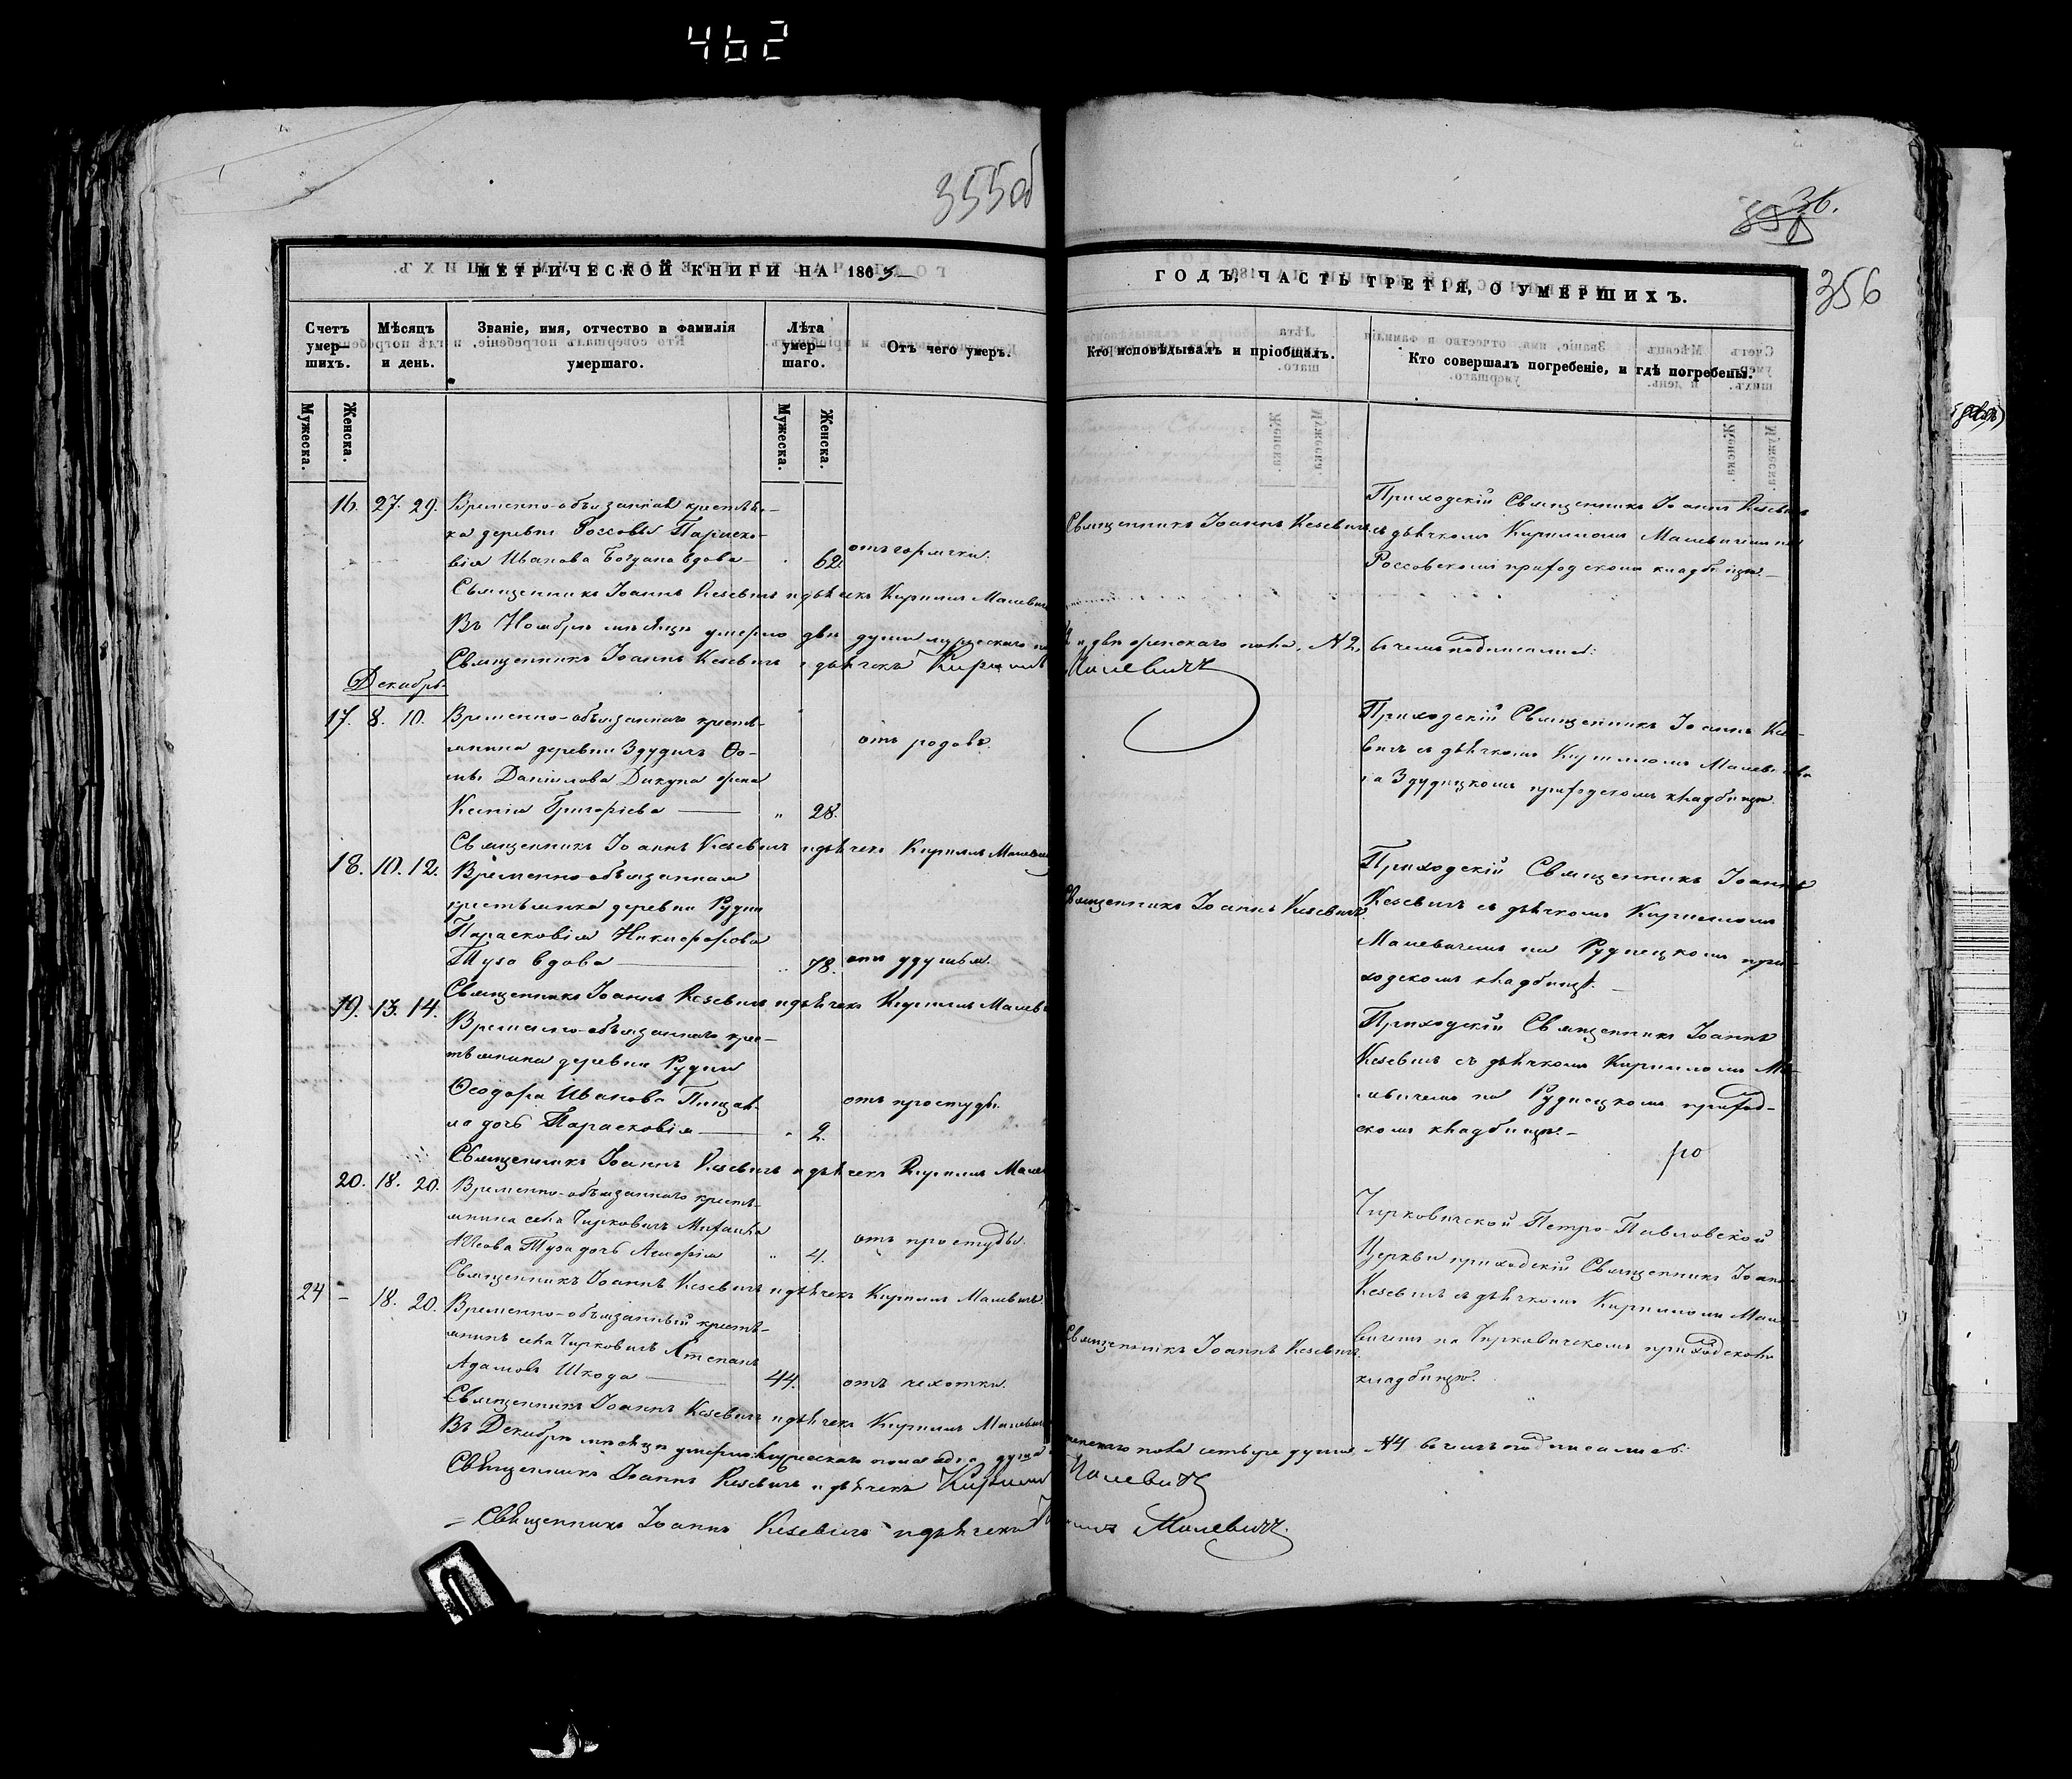 462
355об
36.
356
МЕТРИЧЕСКОЙ КНИГИ НА 1863
ГОДЪ, ЧАСТЬ ТРЕТІЯ, О УМЕРШИХЪ.
Счетъ умер-шихъ.
Мѣсяцъ и день.
Званіе, имя, отчество и фамилія умершаго.
Лѣта умер-шаго.
Отъ чего умеръ.
Кто исповѣдывалъ и пріобщалъ.
Кто совершалъ погребеніе, и гдѣ погребены.
Мужеска.
Женска.
Мужеска.
Женска.
16. 27. 29. Временно-обязанная крестьян-
ка деревни Россовы Параско-
вія Иванова Богдана вдова 62. отъ горячки.
Священникъ Іоаннъ Кезевичъ
Приходскій Священникъ Іоаннъ Кезевичъ
съ дьячкомъ Кирилломъ Малевичемъ на
Россовскомъ приходскомъ кладбищѣ.
Священникъ Іоаннъ Кезевичъ и дьячекъ Кириллъ Малевичъ
Въ Ноябрѣ мѣсяцѣ умерло двѣ души мужескаго по
и двѣ женскаго пола, №2, въ чемъ подписались:
Священникъ Іоаннъ Кезевичъ и дьячекъ Кириллъ Малевичъ
Декабрь
17. 8. 10. Временно-обязаннаго кресть-
янина деревни Здудичъ Ѳо-
мы Даніилова Дикуна жена
Ксенія Григоріева " 28.
отъ родовъ.
Приходскій Священникъ Іоаннъ Кезе-
вичъ съ дьячкомъ Кирилломъ Малевичемъ
на Здудицкомъ приходскомъ кладбищѣ.
Священникъ Іоаннъ Кезевичъ и дьячекъ Кириллъ Малевичъ
18. 10. 12. Временно-обязанная
крестьянка деревни Рудни
Парасковія Никифорова
Туза вдова " 78. отъ удушья.
Священникъ Іоаннъ Кезевичъ
Приходскій Священникъ Іоаннъ
Кезевичъ съ дьячкомъ Кирилломъ
Малевичемъ на Рудницкомъ при-
ходскомъ кладбищѣ.
Священникъ Іоаннъ Кезевичъ и дьячекъ Кириллъ Малеви
19. 13. 14. Временно-обязаннаго крес-
тьянина деревни Рудни
Ѳеодора Иванова
дочь Парасковія 2. отъ простуды.
Приходскій Священникъ Іоаннъ
Кезевичъ съ дьячкомъ Кирилломъ Ма-
левичемъ на Рудницкомъ приход-
скомъ кладбищѣ.
Священникъ Іоаннъ Кезевичъ и дьячекъ Кириллъ Мале
20. 18. 20. Временно-обязаннаго кресть-
янина села Чирковичъ Михаила
Туза дочь " 4. отъ простуды.
Священникъ Іоаннъ Кезевичъ и дьячекъ Кириллъ Малевичъ.
24 - 18. 20. Временно-обязанный кресть-
янинъ села Чирковичъ Степанъ
Адамовъ Шкода 44. отъ чехотки.
Священникъ Іоаннъ Кезевичъ.
Чирковичской Петро-Павловской
Церкви приходскій Священникъ Іоаннъ
Кезевичъ съ дьячкомъ Кирилломъ Мале-
вичемъ на Чирковичскомъ приходскомъ
кладбищѣ.
Священникъ Іоаннъ Кезевичъ и дьячекъ Кириллъ Малевичъ
Въ Декабрѣ мѣсяцѣ умерло мужескаго пола одна душа
женскаго пола четыре души №4 въ чемъ подписались:
Священникъ Іоаннъ Кезевичъ и дьячекъ Кириллъ Малевичъ
Священникъ Іоаннъ Кезевичъ и дьячекъ Кириллъ Малевичъ.